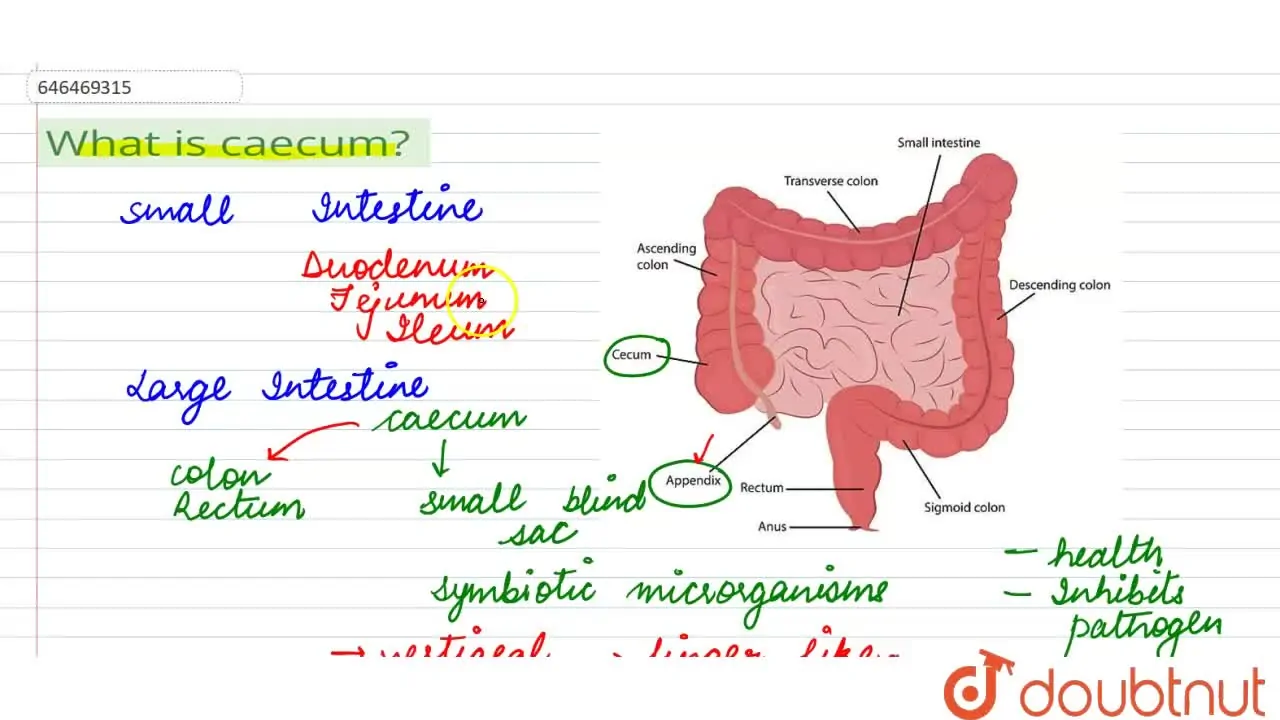 646469315
What is caecum?
Small Intestine
Duodenum
Jejunum
Ileum
Large Intestine
caecum
colon
Rectum
small blind
sac
symbiotic microorganisms
- health
- Inhibits
pathogen
Small intestine
Transverse colon
Ascending
colon
Descending colon
Cecum
Appendix
Rectum
Sigmoid colon
Anus
doubtnut